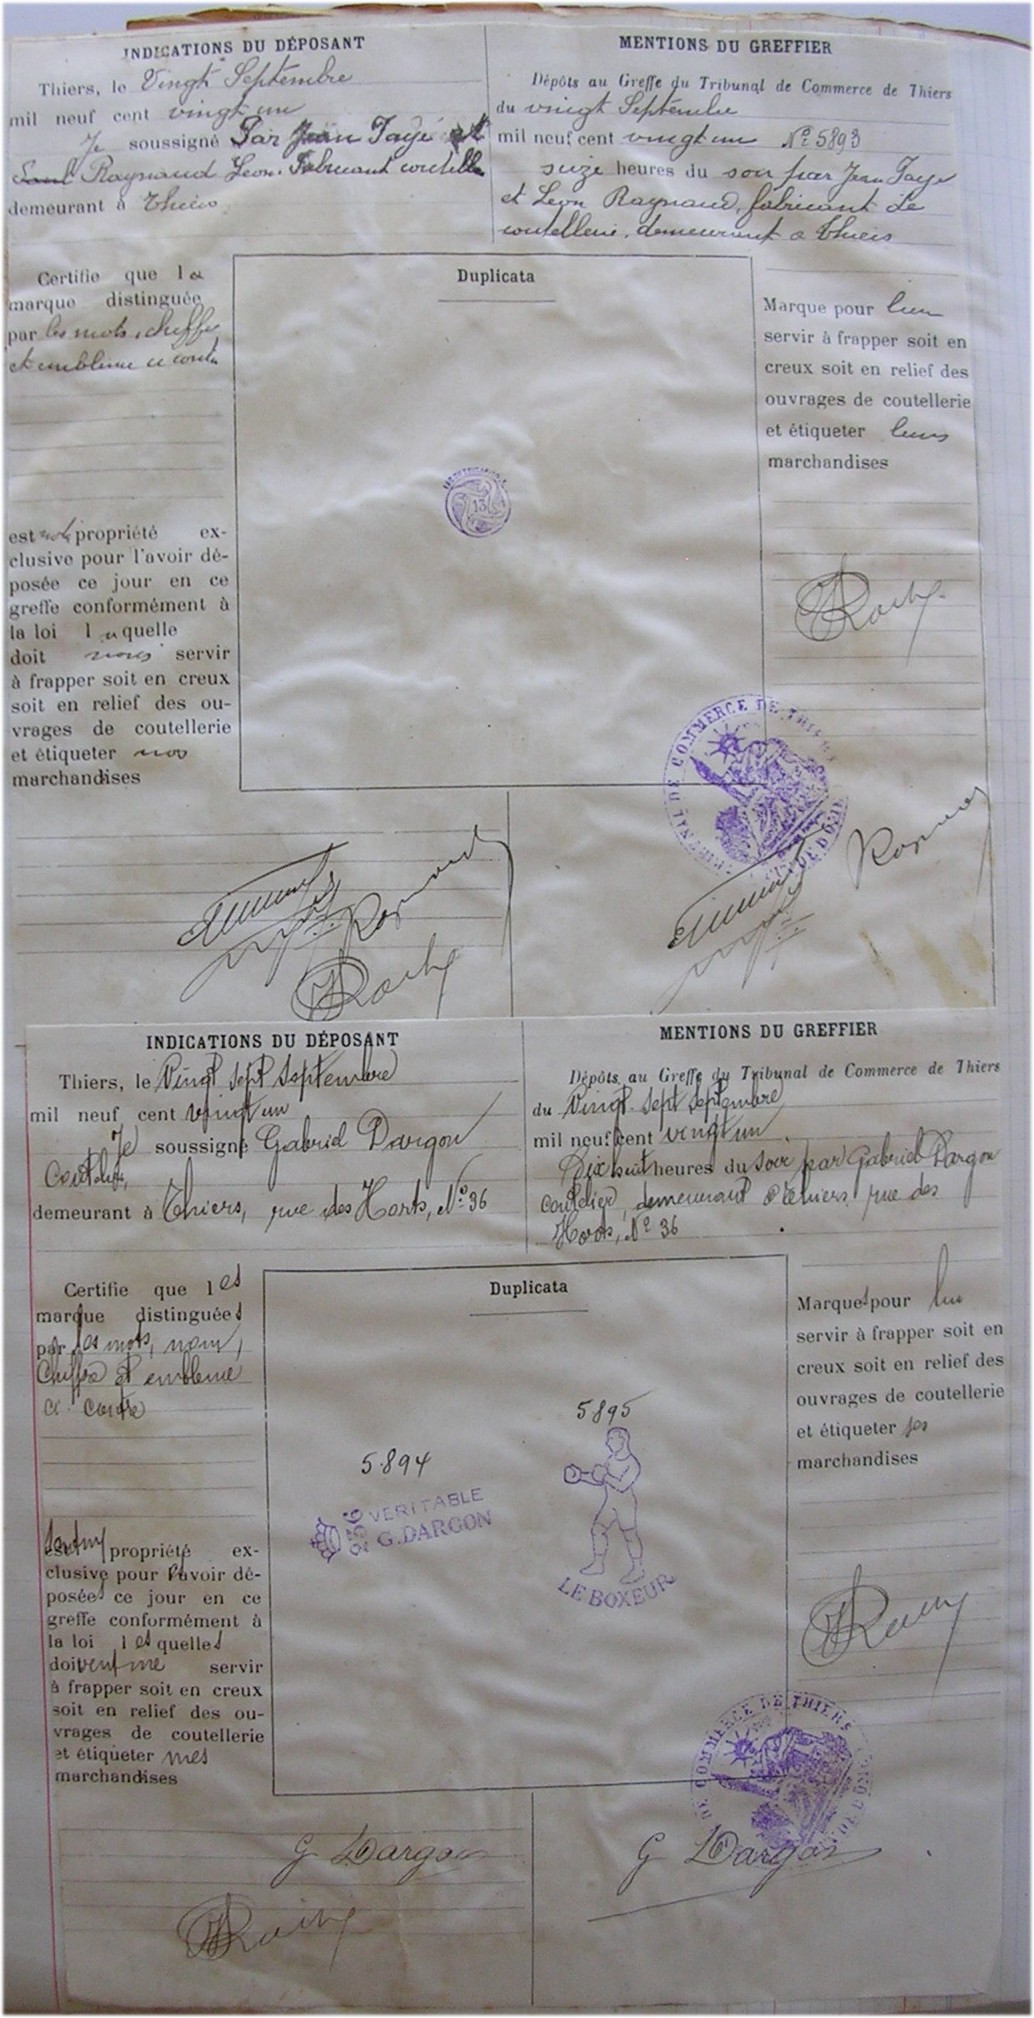 INDICATIONS DU DÉPOSANT
Thiers, le Vingt Septembre
mil neuf cent vingt un
Je soussigné Par Jean Fayé et
Raynaud Léon. Fabricant coutelle
demeurant à Thiers
MENTIONS DU GREFFIER
Dépôts au Greffe du Tribunal de Commerce de Thiers
du vingt Septembre
mil neuf cent vingt un N° 5893
seize heures du soir par Jean Faye
et Léon Raynaud, fabricant de
coutellerie, demeurant a Thiers
Certifie que la
marque distinguée
par les mots, chiffre
et emblème ci contre
est notre propriété ex-
clusive pour l'avoir dé-
posée ce jour en ce
greffe conformément à
la loi laquelle
doit nous servir
à frapper soit en creux
soit en relief des ou-
vrages de coutellerie
et étiqueter nos
marchandises
Duplicata
13
Marque pour leur
servir à frapper soit en
creux soit en relief des
ouvrages de coutellerie
et étiqueter leurs
marchandises
TRIBUNAL DE COMMERCE DE THIERS
INDICATIONS DU DÉPOSANT
Thiers, le Vingt sept septembre
mil neuf cent vingt un
Je soussigné Gabriel Dargon
Coutelier,
demeurant à Thiers, rue des Horts, N° 36
MENTIONS DU GREFFIER
Dépôts au Greffe du Tribunal de Commerce de Thiers
du Vingt sept septembre
mil neuf cent vingt un
Dix huit heures du soir par Gabriel Dargon
coutelier, demeurant à Thiers, rue des
Horts, N° 36
Certifie que les
marque distinguées
par les mots, nom,
chiffre et emblème
ci-contre
sont my propriété ex-
clusive pour l'avoir dé-
posées ce jour en ce
greffe conformément à
la loi lesquelles
doivent me servir
à frapper soit en creux
soit en relief des ou-
vrages de coutellerie
et étiqueter mes
marchandises
Duplicata
5894
VERITABLE
G. DARGON
5895
LE BOXEUR
Marques pour lui
servir à frapper soit en
creux soit en relief des
ouvrages de coutellerie
et étiqueter ses
marchandises
DE COMMERCE DE THIERS
G Dargon
G Dargon